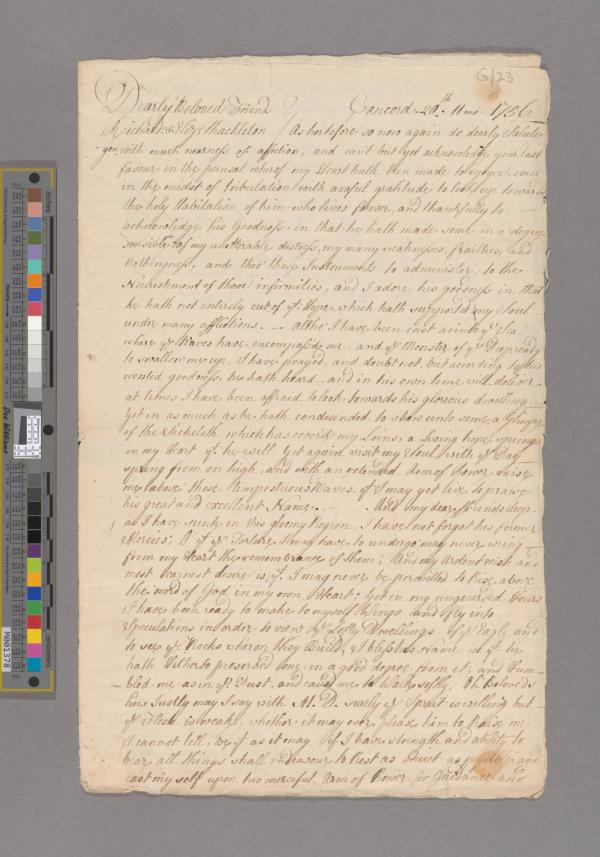 G/23
Dearly Beloved Friend Concord 20th 11mo 1756
Richard & Eliz Shackleton As heretofore so now again do dearly Salute
you with much nearness of affection, and can't but yet acknowledge your last
favour in the perusal wherof my Heart hath been made to rejoyce, even
in the midst of tribulation with awful gratitude to look up towards
the holy Habitation, of him who lives forever, and thankfully to
acknowledge his Goodness in that he hath made some in a degree
sensible of my unutterable distress, my many weaknesses, frailties, and
Nothingness, and those Instruments to administer to the
Nourishment of those infirmities, and I adore his goodness in that
he hath not entirely cut of yt Hope which hath supported my Soul
under many afflictions. altho I have been cast as into ye Sea
where ye Waves have encompass'd me and ye Monster of ye Deep ready
to swallow me up, I have prayed, and doubt not, but according to his
wonted goodness, he hath heard, and in his own time, will deliver
at times I have been afraid to look towards his glorious dwelling
yet in as much as he hath condesended to show unto me a Glimpse
of the which has cover'd my Loins, a living hope springs
in my Heart yt he will yet again visit my Soul with ye Day
spring from on high, and with an extended Arm of Power raise
me above those tempestuous Waves, yt I may yet live to praise
his great and excellent Name. And my dear friends deep
as I have sunk in this gloomy Region, I have not forgot his former
Mercies; O yt ye Torture I may have to undergo may never wring
from my Heart the remembrance of them; And my ardent wish and
most earnest desire is, yt I may never be permitted to Rise above
the word of God in my own Heart; yet in my unguarded Hours
I have been ready to make to myself Wings and fly into
Speculations in order to view ye Lofty Dwellings of ye Eagle and
to see ye Rocks wheron they Build, I bless his Name yt he
hath hitherto preserved me in a good degree from it, and Hum
bled me as in ye Dust, and caused me to Walk softly, Oh Beloveds
how Justly may I say with M. D. surely ye Spirit is willing but
ye Flesh is weak, whether it may ever please him to Raise me
I cannot tell, be yt as it may if I have strength and ability to
bear all things shall endeavour to Rest as Quiet as possible and
cast my self upon his merciful Arm of Power for Guidance and
inches
centimeters
Don Williams
M001378